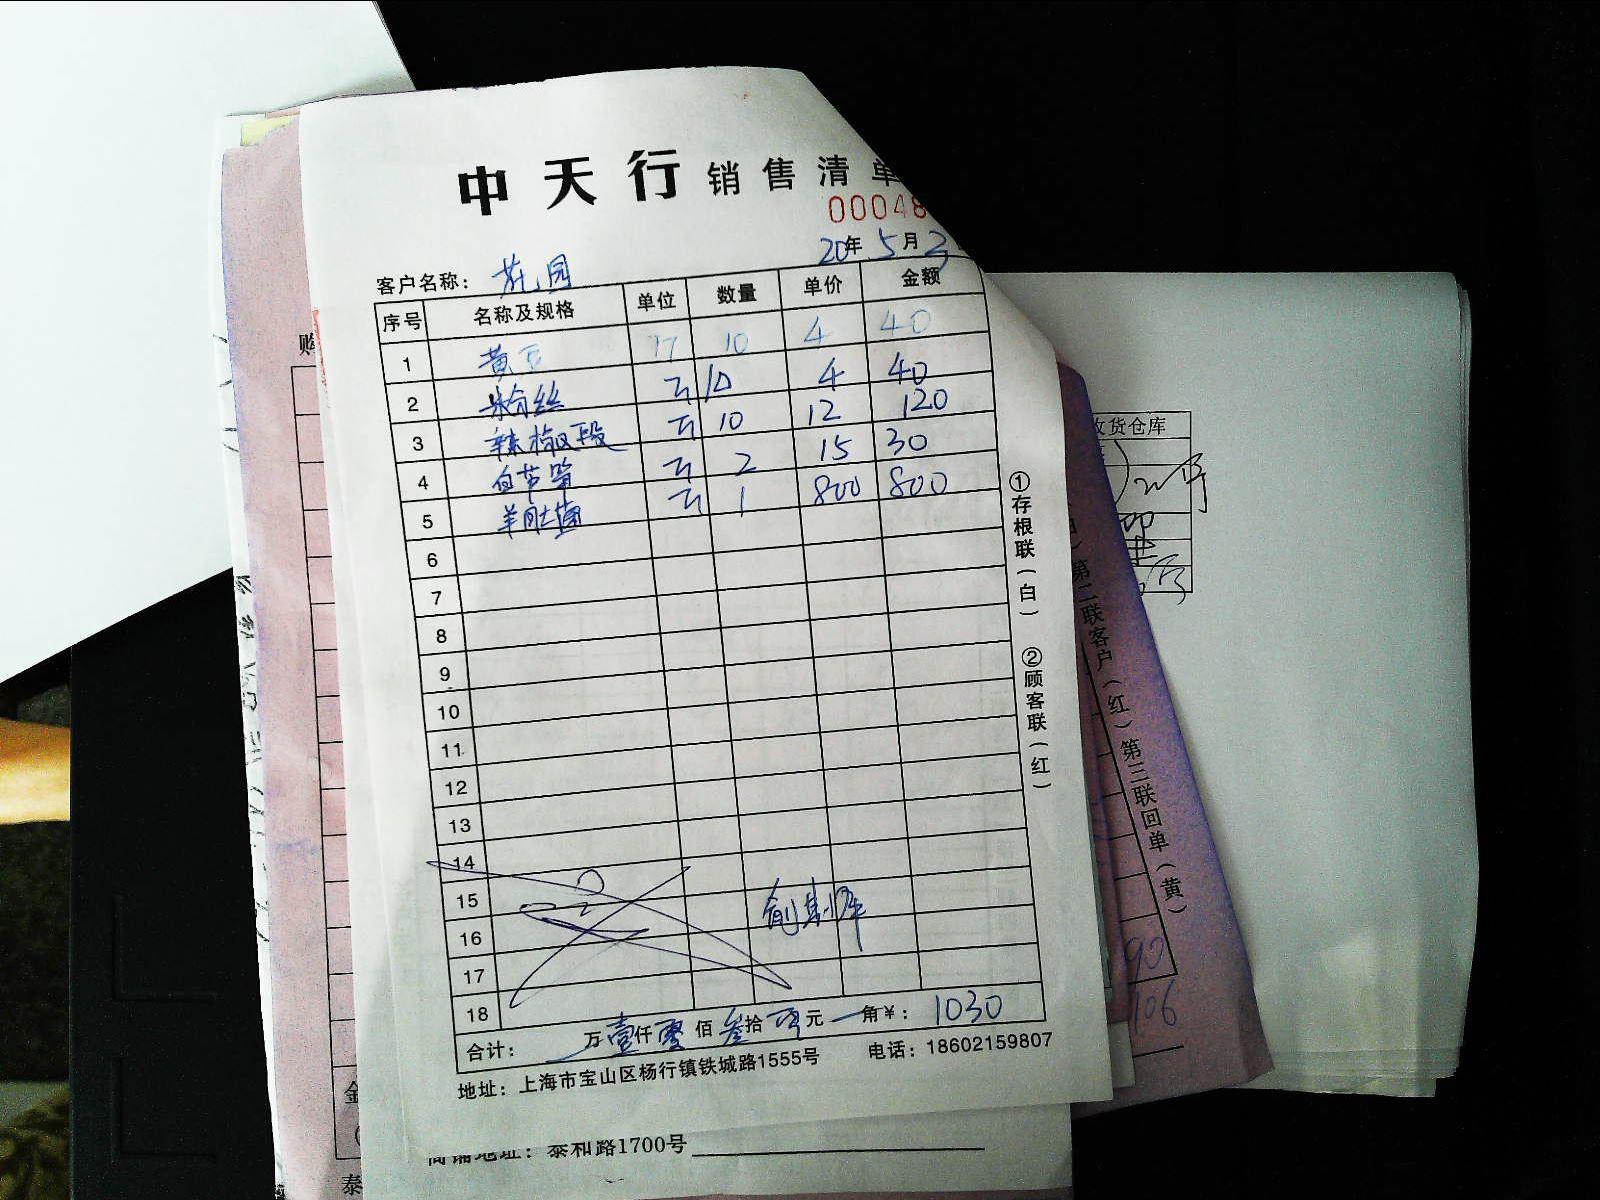 中天行 销售清单
00048
20年5月2
客户名称: 花园
序号 名称及规格 单位 数量 单价 金额
1 黄豆 斤 10 4 40
2 粉丝 斤 10 4 40
3 辣椒段 斤 10 12 120
4 斤 2 15 30
5 羊肚菌 斤 1 800 800
6
7
8
9
10
11
12
13
14
15
16
17
18
合计: 万壹仟零佰叁拾零元 角¥: 1030
地址: 上海市宝山区杨行镇铁城路1555号 电话: 18602159807
①存根联(白) ②顾客联(红)
收货仓库
第二联客户(红) 第三联回单(黄)
90
106
购
金
商铺地址: 泰和路1700号
泰